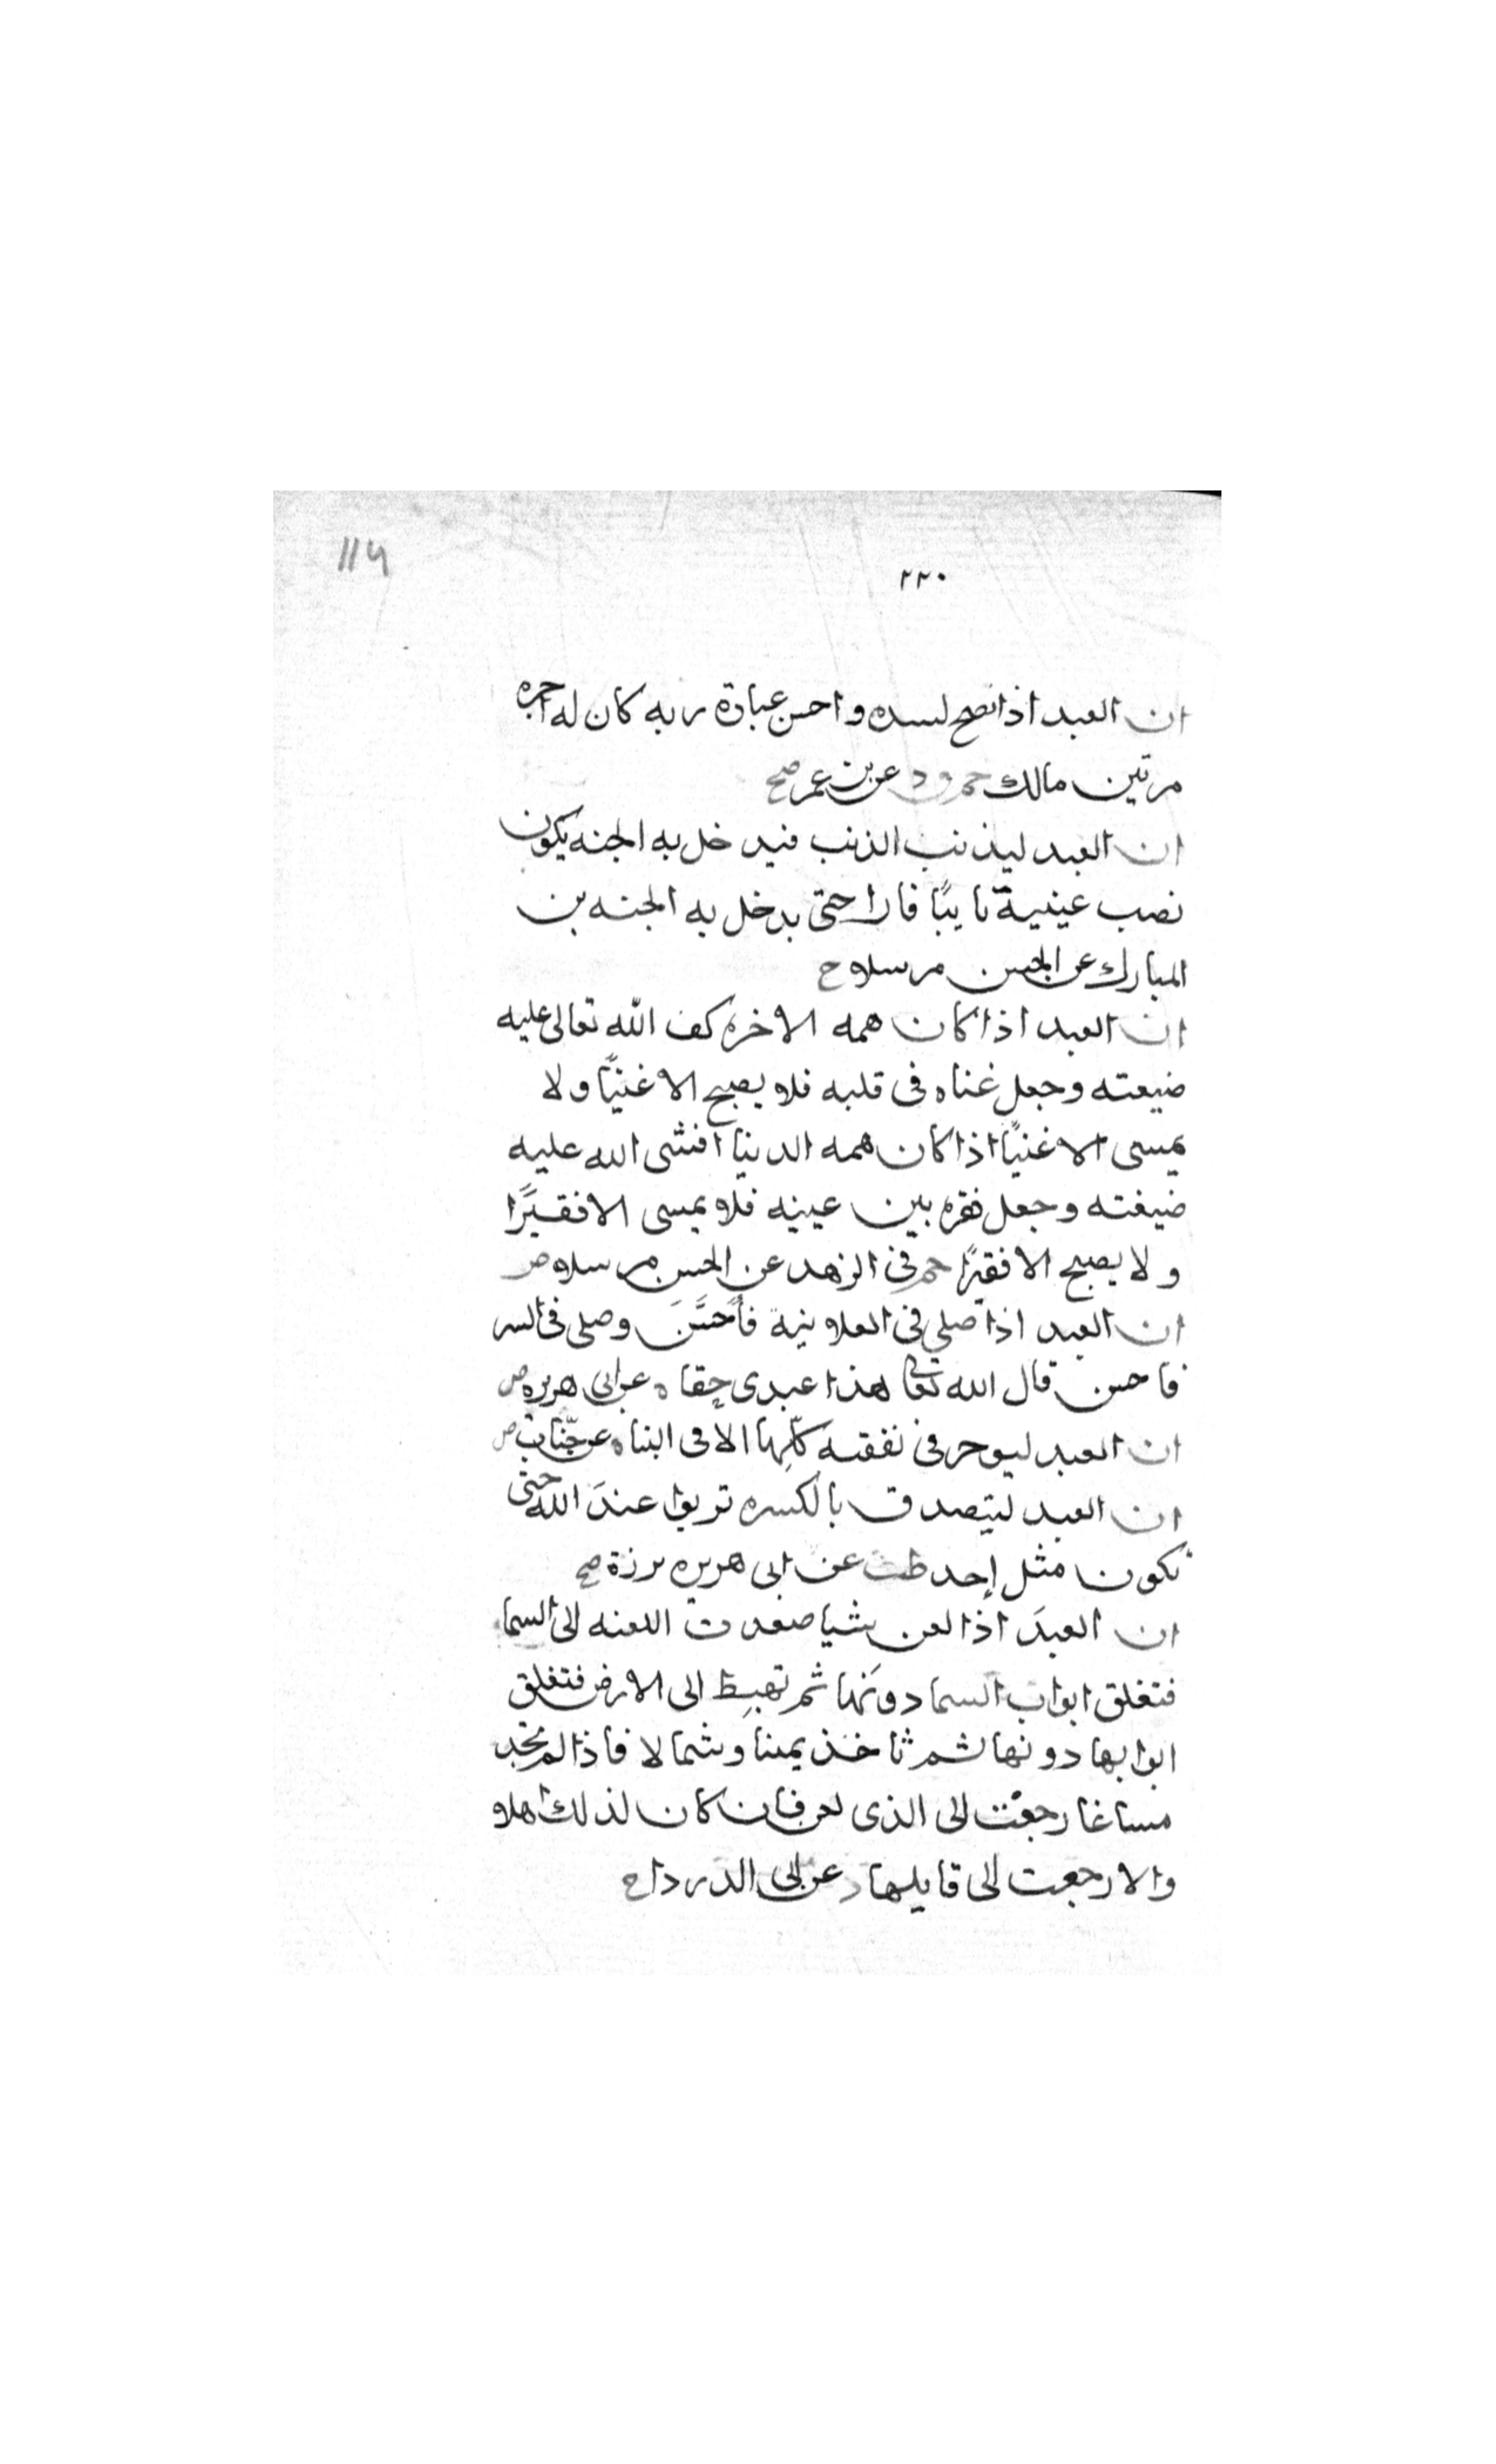 114
٢٢٠
ان العبد اذا نصح لسيده واحسن عبادة ربه كان له اجره
مرتين مالك حم ق د عن بن عمر صح
ان العبد ليذنب الذنب فيدخل به الجنه يكون
نصب عينية تايبًا فارا حتى يدخل به الجنه بن
المبارك عن الحسن مرسلا ح
ان العبد اذا كان همه الاخره كف الله تعالى عليه
ضيعته وجعل غناه فى قلبه فلا يصبح الا غنيًا ولا
يمسى الا غنيًا اذا كان همه الدنيا افشى الله عليه
ضيعته وجعل فقره بين عينيه فلا يمسى الا فقيرًا
ولا يصبح الا فقيرًا حم فى الزهد عن الحسن مرسلا ض
ان العبد اذا صلي فى العلانية فأحسَنَ وصلى فى السر
فاحسن قال الله تعالى هذا عبدى حِقا ه عن ابى هريره ض
ان العبد ليوجر فى نفقته كلِّها الا فى البنا ه عن خبّاب ض
ان العبد ليتصدق بالكسره تربوا عندَ الله حتى
تكون مثل إحد طب عن ابى هريره برزة صح
ان العبدَ اذا لعن شيا صعدت اللعنه الى السما
فتغلق ابواب السما دونَها ثم تهبِط الى الارض فتغلق
ابوابها دونها ثم تاخذ يمينا وشمالا فاذا لم تجد
مساغا رجعت الى الذى لعن فان كان لذلك اهلا
والا رجعت الى قايلها د عن ابى الدرداح